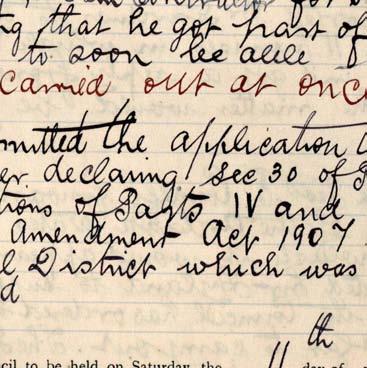 contractor for
ng that he got part of
to soon be able
carried out at onc
mitted the application
er declaring sec 30 of P
tions of Parts IV and
Amendment Act 1907
l District which was
d
11th
cil to be held on Saturday the day of